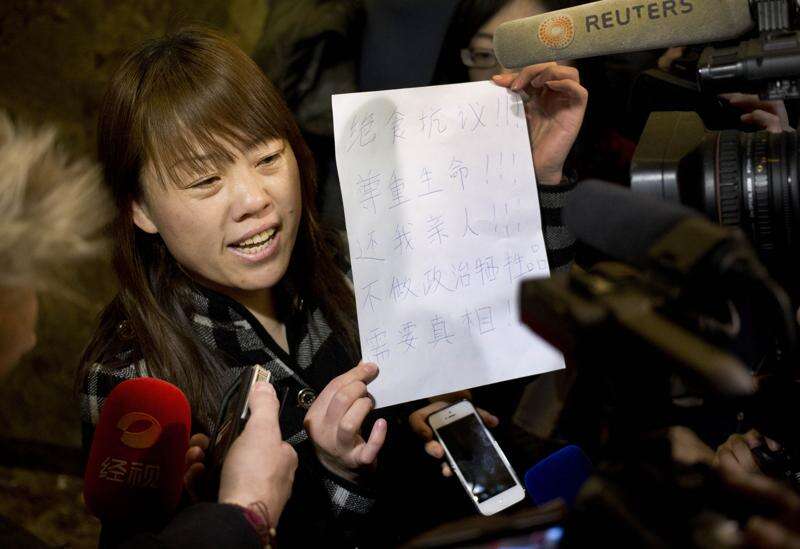 REUTERS
绝食抗议!!!
尊重生命!!!
还我亲人!!!
不做政治牺牲品
需要真相!!
经视